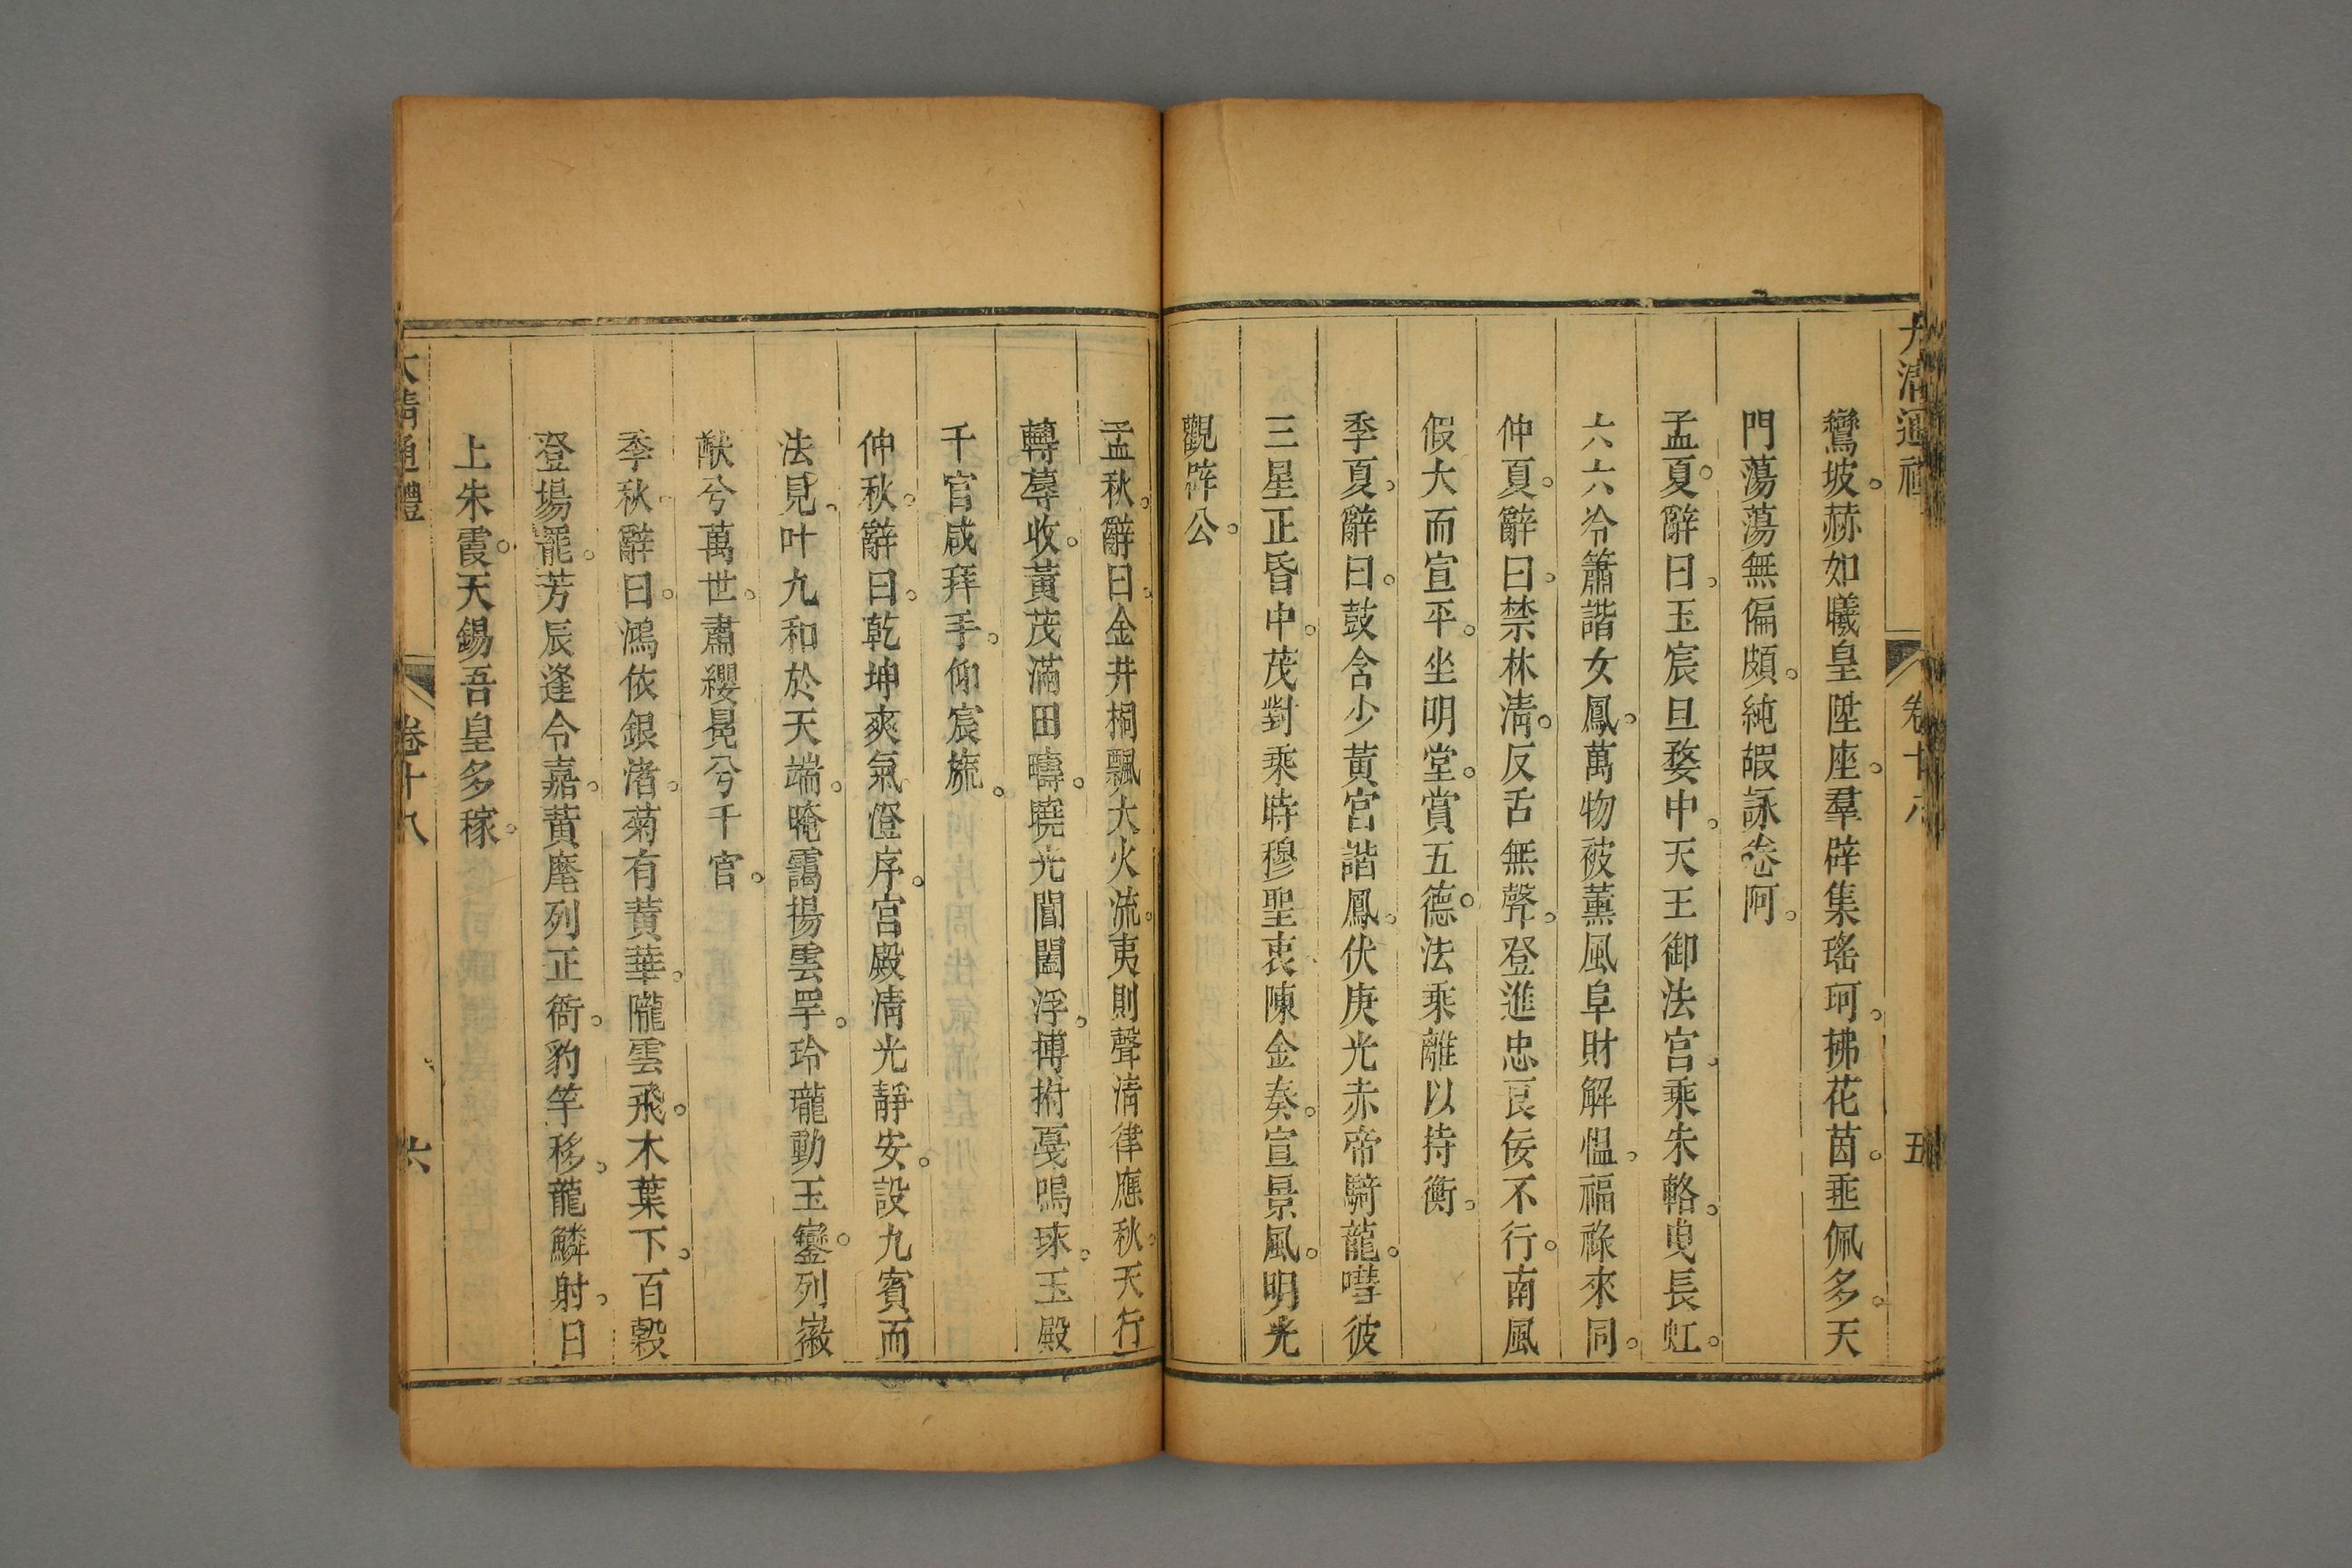 大清通禮 卷十八 五
鸞坡。赫如曦皇陞座。羣辟集瑤珂。拂花茵。垂佩多。天
門蕩蕩無偏頗。純嘏詠卷阿。
孟夏。辭曰。玉宸旦婺中。天王御法宮。乘朱輅。曳長虹。
六六泠簫諧女鳳。萬物被薰風阜財解慍。福祿來同。
仲夏。辭曰。禁林清。反舌無聲。登進忠良佞不行。南風
假大而宣平。坐明堂。賞五德。法乘離以持衡。
季夏。辭曰。鼓含少黃宮諧鳳。伏庚光赤帝騎龍。嘒彼
三星正昏中。茂對乘時穆聖衷陳金奏。宣景風。明光
觀辟公。
孟秋。辭曰。金井桐飄大火流。夷則聲清律應秋。天行
轉蓐收。黃茂滿田疇。曉光閶闔浮。搏拊戛鳴球。玉殿
千官咸拜手。仰宸旒。
仲秋。辭曰。乾坤爽氣澄序。宮殿清光靜安。設九賓而
法見。叶九和於天端。晻靄揚雲罕。玲瓏動玉鑾。列徽
猷兮萬世。肅纓冕兮千官。
季秋。辭曰。鴻依銀渚。菊有黃華。隴雲飛。木葉下。百穀
登場罷。芳辰逢令嘉。黃麾列正衙。豹竿移。龍鱗射。日
上朱霞。天錫吾皇多稼。
大清通禮 卷十八 六